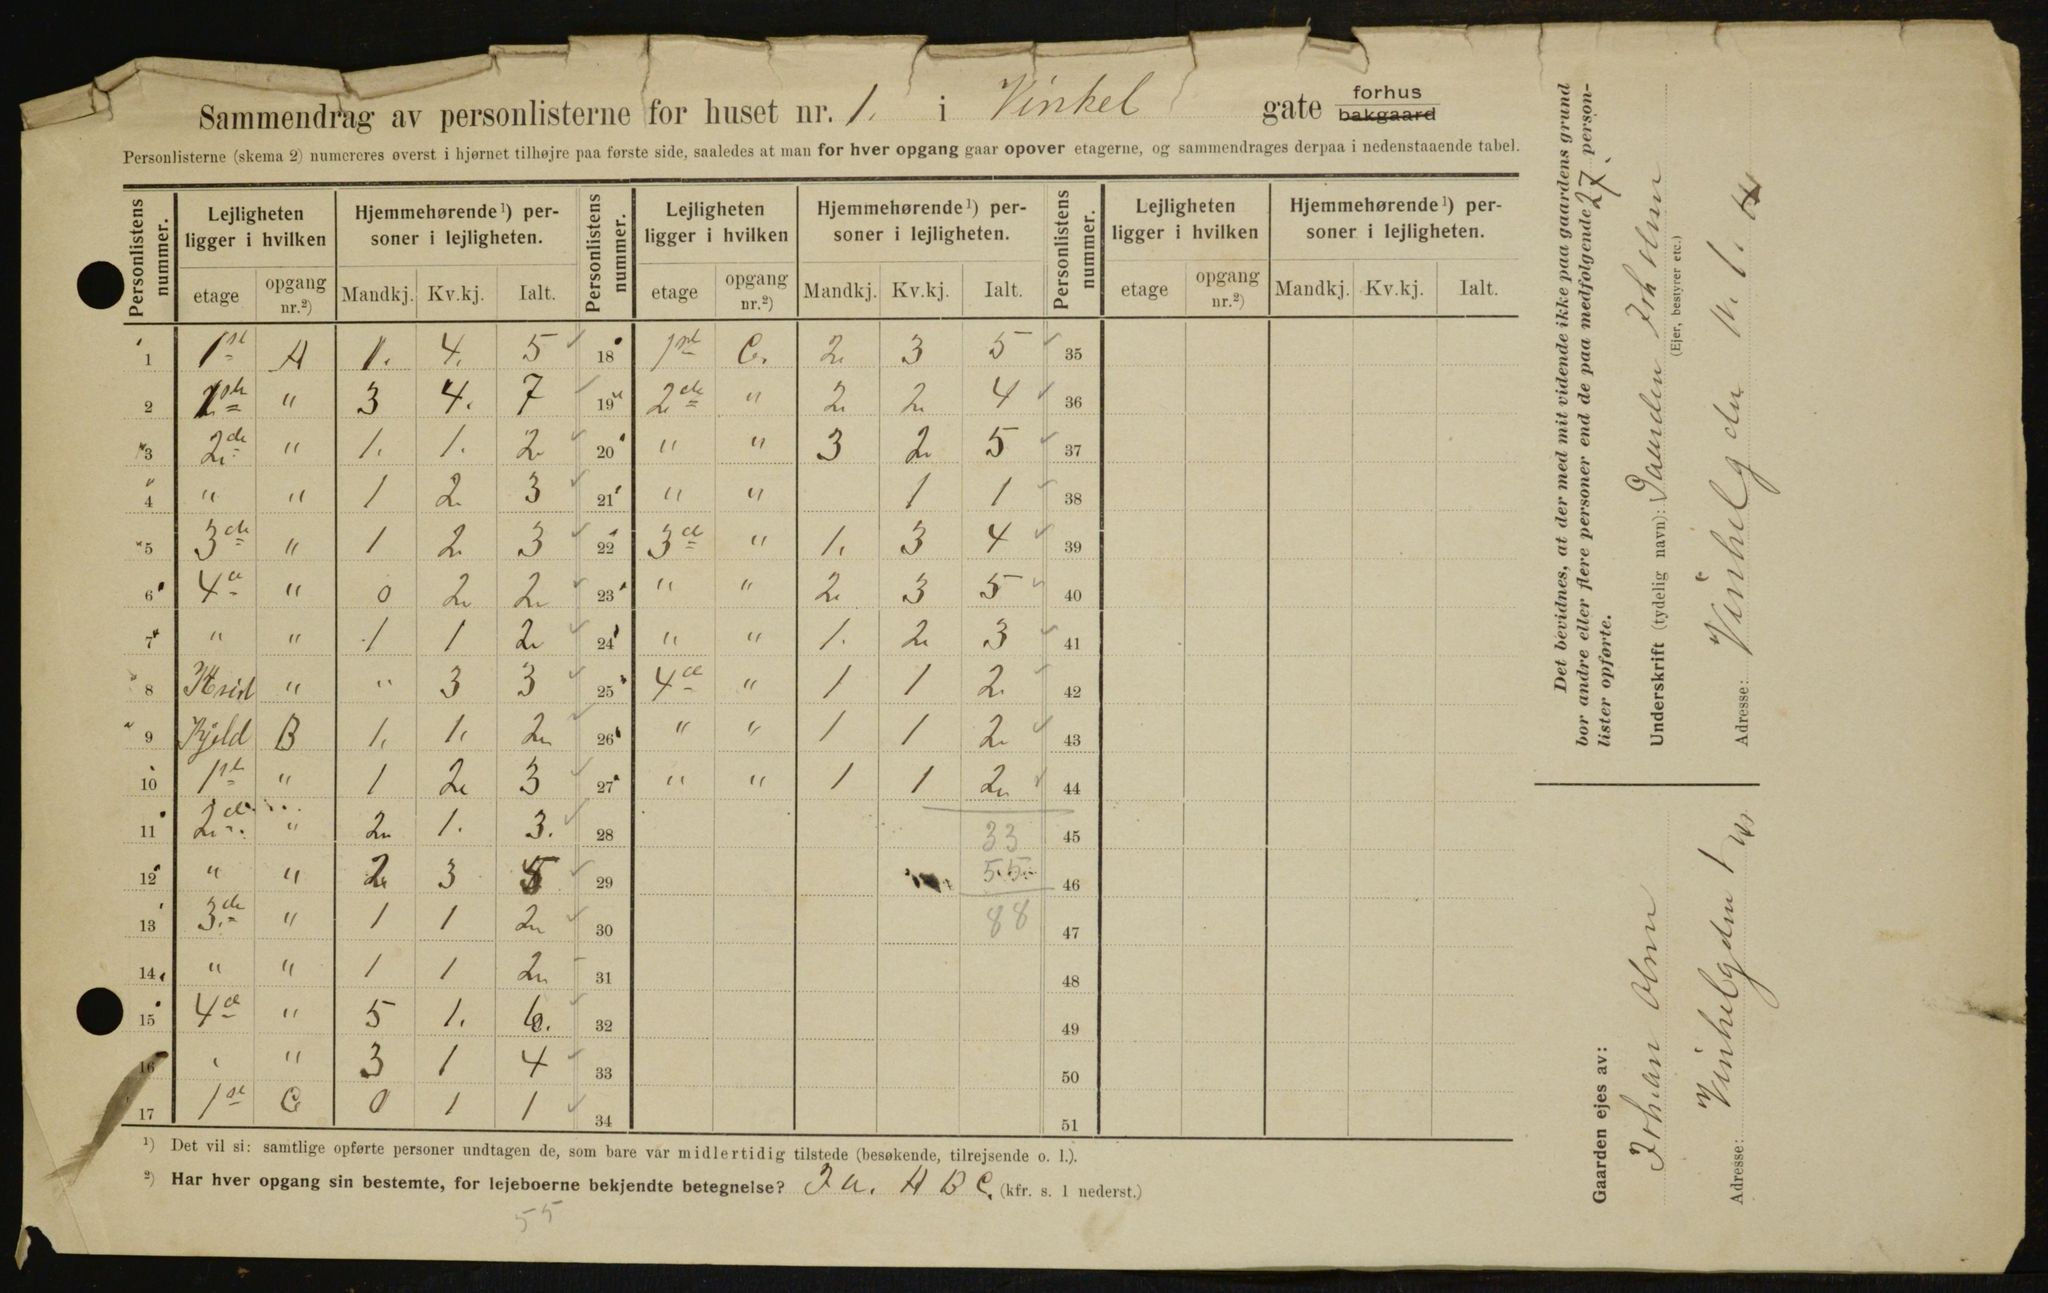 Sammendrag av personlisterne for huset nr. 1. i Vinkel gate forhus bakgaard
Personlisterne (skema 2) numereres øverst i hjørnet tilhøjre paa første side, saaledes at man for hver opgang gaar opover etagerne, og sammendrages derpaa i nedenstaaende tabel.
Personlistens nummer. Lejligheten ligger i hvilken Hjemmehørende¹) personer i lejligheten. Personlistens nummer. Lejligheten ligger i hvilken Hjemmehørende¹) personer i lejligheten. Personlistens nummer. Lejligheten ligger i hvilken Hjemmehørende¹) personer i lejligheten.
etage opgang nr.²) Mandkj. Kv.kj. Ialt. etage opgang nr.²) Mandkj. Kv.kj. Ialt. etage opgang nr.²) Mandkj. Kv.kj. Ialt.
1 1ste A 1. 4. 5 18 1ste C. 2 3 5 35
2 1ste " 3 4. 7 19 2de " 2 2 4 36
3 2de " 1. 1. 2 20 " " 3 2 5 37
4 " " 1 2 3 21 " " 1 1 38
5 3de " 1 2 3 22 3de " 1. 3 4 39
6 4de " 0 2 2 23 " " 2 3 5 40
7 " " 1 1 2 24 " " 1. 2 3 41
8 " " 3 3 25 4de " 1 1 2 42
9 Kjeld B 1. 1. 2 26 " " 1 1 2 43
10 1ste " 1 2 3 27 " " 1 1 2 44
11 2de " 2 1. 3. 28 33 45
12 " " 2 3 5 29 55 46
13 3de " 1 1 2 30 88 47
14 " " 1 1 2 31 48
15 4de " 5 1. 6. 32 49
16 " " 3 1 4 33 50
17 1ste C 0 1 1 34 51
¹) Det vil si: samtlige opførte personer undtagen de, som bare var midlertidig tilstede (besøkende, tilrejsende o. l.).
²) Har hver opgang sin bestemte, for lejeboerne bekjendte betegnelse? Ja. A B C. (kfr. s. 1 nederst.)
55
Det bevidnes, at der med mit vidende ikke paa gaardens grund
bor andre eller flere personer end de paa medfølgende 27 person-
lister opførte.
Underskrift (tydelig navn):
(Ejer, bestyrer etc.)
Adresse: Vinkelgdn N. 1.
Gaarden ejes av:
Johan
Adresse: Vinkelgdn 1